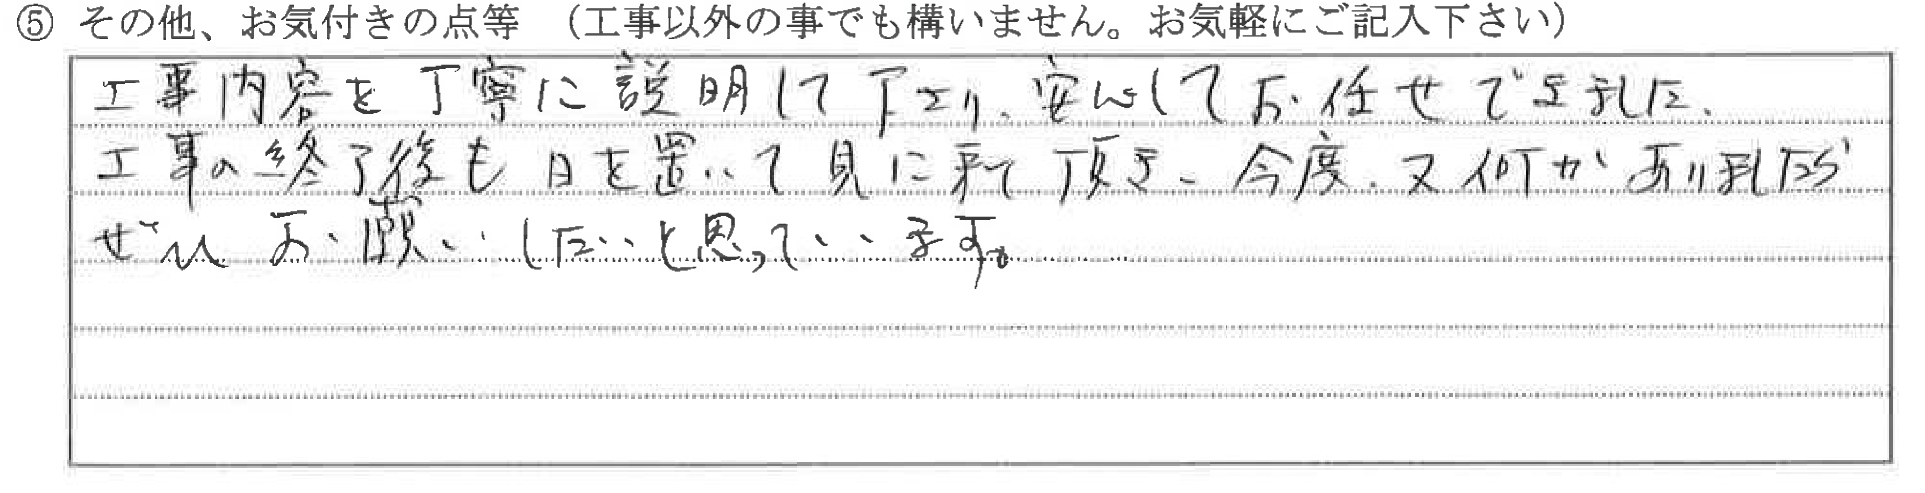 ⑤ その他、お気付きの点等 （工事以外の事でも構いません。お気軽にご記入下さい）
工事内容を丁寧に説明して下さり、安心してお任せできました。
工事の終了後も日を置いて見に来て頂き、今度、又何かありましたら
ぜひお願いしたいと思っています。